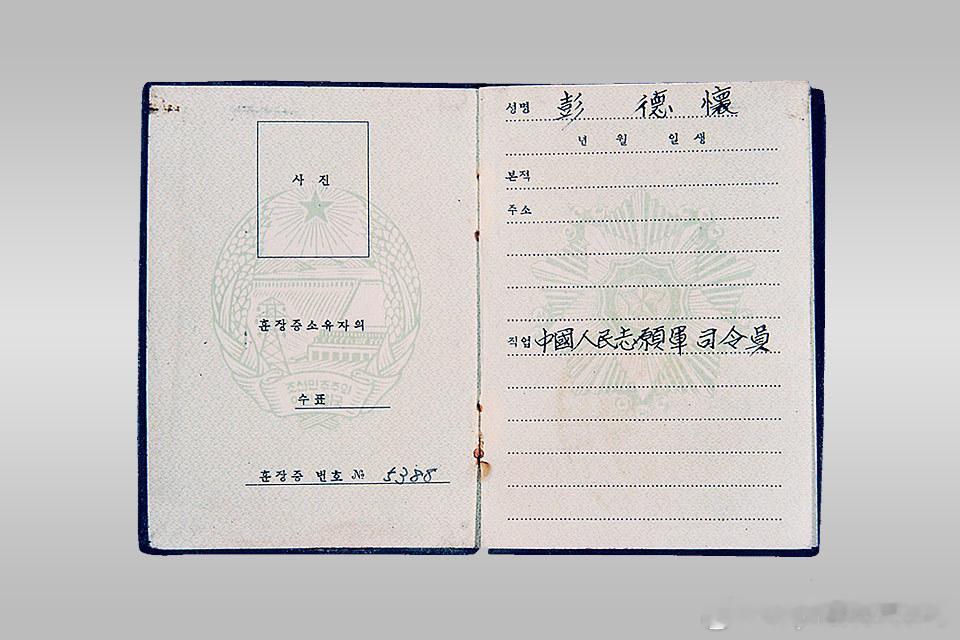 사 진
훈장증소유자의
조선민주주의
수 표
훈장증 번호 № 5388
성명 彭 德 懷
년 월 일 생
본적
주소
직업 中國人民志願軍司令員